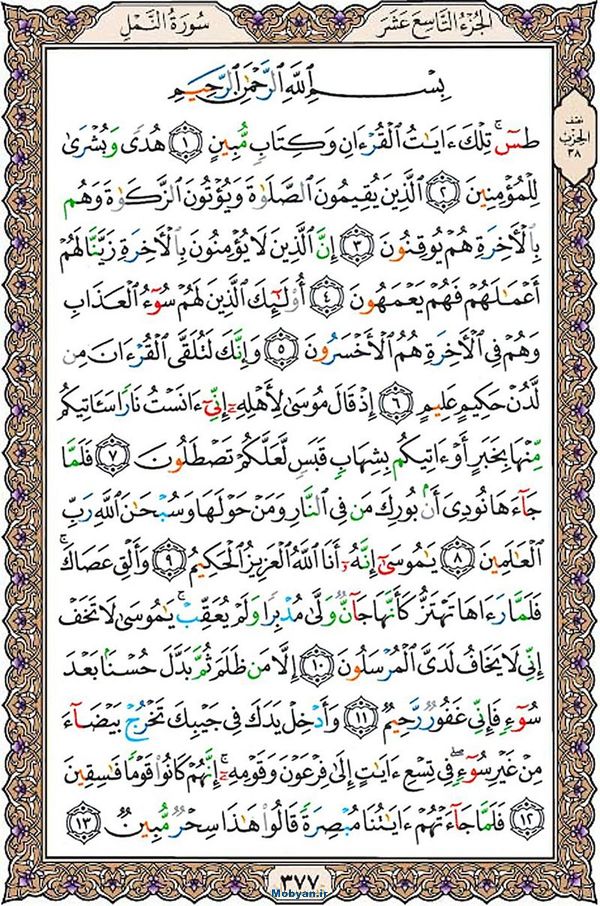 الجُزءُ التَّاسِعَ عَشَرَ
سُورَةُ النَّمْلِ
نصف
الحِزْبِ
٣٨
بِسْمِ ٱللَّهِ ٱلرَّحْمَٰنِ ٱلرَّحِيمِ
طسٓ ۚ تِلْكَ ءَايَـٰتُ ٱلْقُرْءَانِ وَكِتَابٍ مُّبِينٍ ١ هُدًى وَبُشْرَىٰ
لِلْمُؤْمِنِينَ ٢ ٱلَّذِينَ يُقِيمُونَ ٱلصَّلَوٰةَ وَيُؤْتُونَ ٱلزَّكَوٰةَ وَهُم
بِٱلْأَخِرَةِ هُمْ يُوقِنُونَ ٣ إِنَّ ٱلَّذِينَ لَا يُؤْمِنُونَ بِٱلْأَخِرَةِ زَيَّنَّا لَهُمْ
أَعْمَـٰلَهُمْ فَهُمْ يَعْمَهُونَ ٤ أُوْلَـٰٓئِكَ ٱلَّذِينَ لَهُمْ سُوٓءُ ٱلْعَذَابِ
وَهُمْ فِى ٱلْأَخِرَةِ هُمُ ٱلْأَخْسَرُونَ ٥ وَإِنَّكَ لَتُلَقَّى ٱلْقُرْءَانَ مِن
لَّدُنْ حَكِيمٍ عَلِيمٍ ٦ إِذْ قَالَ مُوسَىٰ لِأَهْلِهِۦٓ إِنِّىٓ ءَانَسْتُ نَارًا سَـَٔاتِيكُم
مِّنْهَا بِخَبَرٍ أَوْ ءَاتِيكُم بِشِهَابٍ قَبَسٍ لَّعَلَّكُمْ تَصْطَلُونَ ٧ فَلَمَّا
جَآءَهَا نُودِىَ أَنۢ بُورِكَ مَن فِى ٱلنَّارِ وَمَنْ حَوْلَهَا وَسُبْحَـٰنَ ٱللَّهِ رَبِّ
ٱلْعَـٰلَمِينَ ٨ يَـٰمُوسَىٰٓ إِنَّهُۥٓ أَنَا ٱللَّهُ ٱلْعَزِيزُ ٱلْحَكِيمُ ٩ وَأَلْقِ عَصَاكَ ۚ
فَلَمَّا رَءَاهَا تَهْتَزُّ كَأَنَّهَا جَآنٌّ وَلَّىٰ مُدْبِرًا وَلَمْ يُعَقِّبْ ۚ يَـٰمُوسَىٰ لَا تَخَفْ
إِنِّى لَا يَخَافُ لَدَىَّ ٱلْمُرْسَلُونَ ١٠ إِلَّا مَن ظَلَمَ ثُمَّ بَدَّلَ حُسْنًۢا بَعْدَ
سُوٓءٍ فَإِنِّى غَفُورٌ رَّحِيمٌ ١١ وَأَدْخِلْ يَدَكَ فِى جَيْبِكَ تَخْرُجْ بَيْضَآءَ
مِنْ غَيْرِ سُوٓءٍ ۖ فِى تِسْعِ ءَايَـٰتٍ إِلَىٰ فِرْعَوْنَ وَقَوْمِهِۦٓ ۚ إِنَّهُمْ كَانُوا۟ قَوْمًا فَـٰسِقِينَ
١٢ فَلَمَّا جَآءَتْهُمْ ءَايَـٰتُنَا مُبْصِرَةً قَالُوا۟ هَـٰذَا سِحْرٌ مُّبِينٌ ١٣
٣٧٧
Mobyan.ir